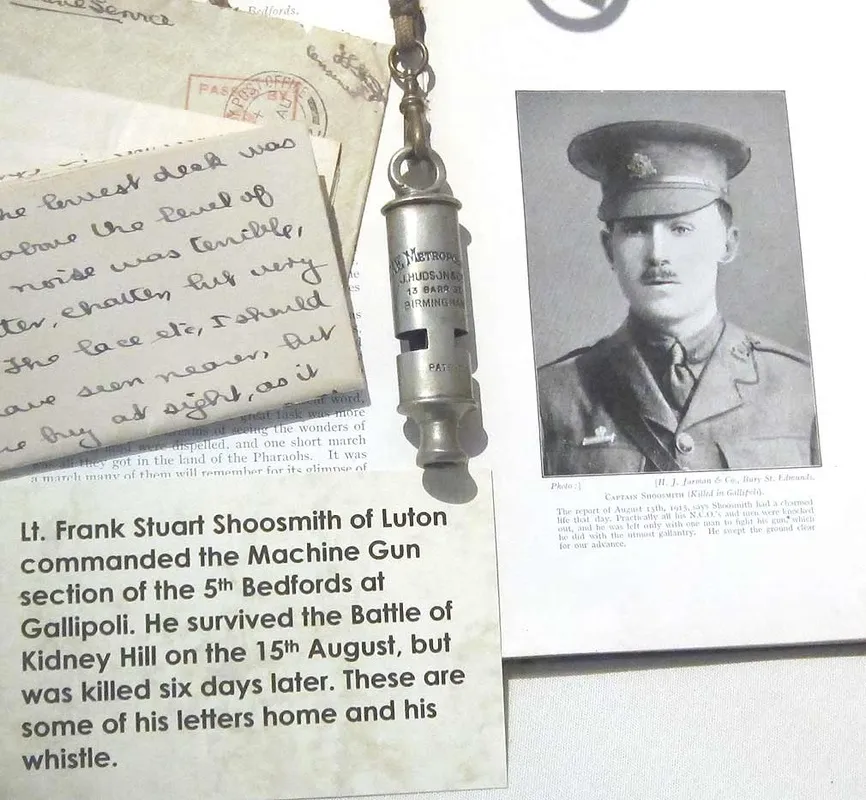 Service
Bedfords.
PASSED BY
POST OFFICE
he lowest deck was
above the level of
noise was terrible,
ter, chatter, but very
The lace etc, I should
have seen nearer, but
buy at sight, as it
word,
great task was more
of seeing the wonders of
were dispelled, and one short march
they got in the land of the Pharaohs. It was
a march many of them will remember for its glimpse of
THE METROPO
J. HUDSON & CO
13 BARR ST
BIRMINGHAM
PATE
Photo:] [H. J. Jarman & Co., Bury St. Edmunds.
CAPTAIN SHOOSMITH (Killed in Gallipoli).
The report of August 15th, 1915, says Shoosmith had a charmed
life that day. Practically all his N.C.O.'s and men were knocked
out, and he was left only with one man to fight his gun, which
he did with the utmost gallantry. He swept the ground clear
for our advance.
Lt. Frank Stuart Shoosmith of Luton
commanded the Machine Gun
section of the 5th Bedfords at
Gallipoli. He survived the Battle of
Kidney Hill on the 15th August, but
was killed six days later. These are
some of his letters home and his
whistle.